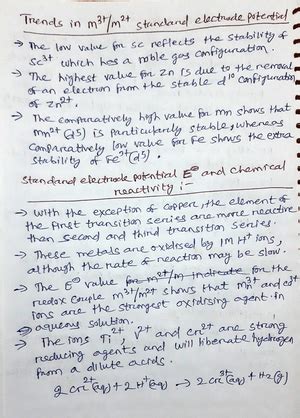 Trends in m³⁺/m²⁺ standard electrode potential
→ The low value for sc reflects the stability of
Sc³⁺ which has a noble gas configuration.
→ The highest value for Zn is due to the removal
of an electron from the stable d¹⁰ configuration
of Zn²⁺.
→ The comparatively high value for mn shows that
mn²⁺ (d5) is particularly stable, whereas
comparatively low value for Fe shows the extra
stability of Fe³⁺ (d5).
Standard electrode potential E⁰ and chemical
reactivity :-
→ With the exception of copper, the element of
the first transition series are more reactive
than second and third transition series.
→ These metals are oxidised by 1M H⁺ ions,
although the rate of reaction may be slow.
→ The E⁰ value for m²⁺/m indicate for the
redox couple m³⁺/m²⁺ shows that mn³⁺ and co³⁺
ions are the strongest oxidising agent in
aqueous solution.
→ The ions Ti²⁺, V²⁺ and cr²⁺ are strong
reducing agents and will liberate hydrogen
from a dilute acids.
2 cr²⁺(aq) + 2 H⁺(aq) → 2 cr³⁺(aq) + H2(g)